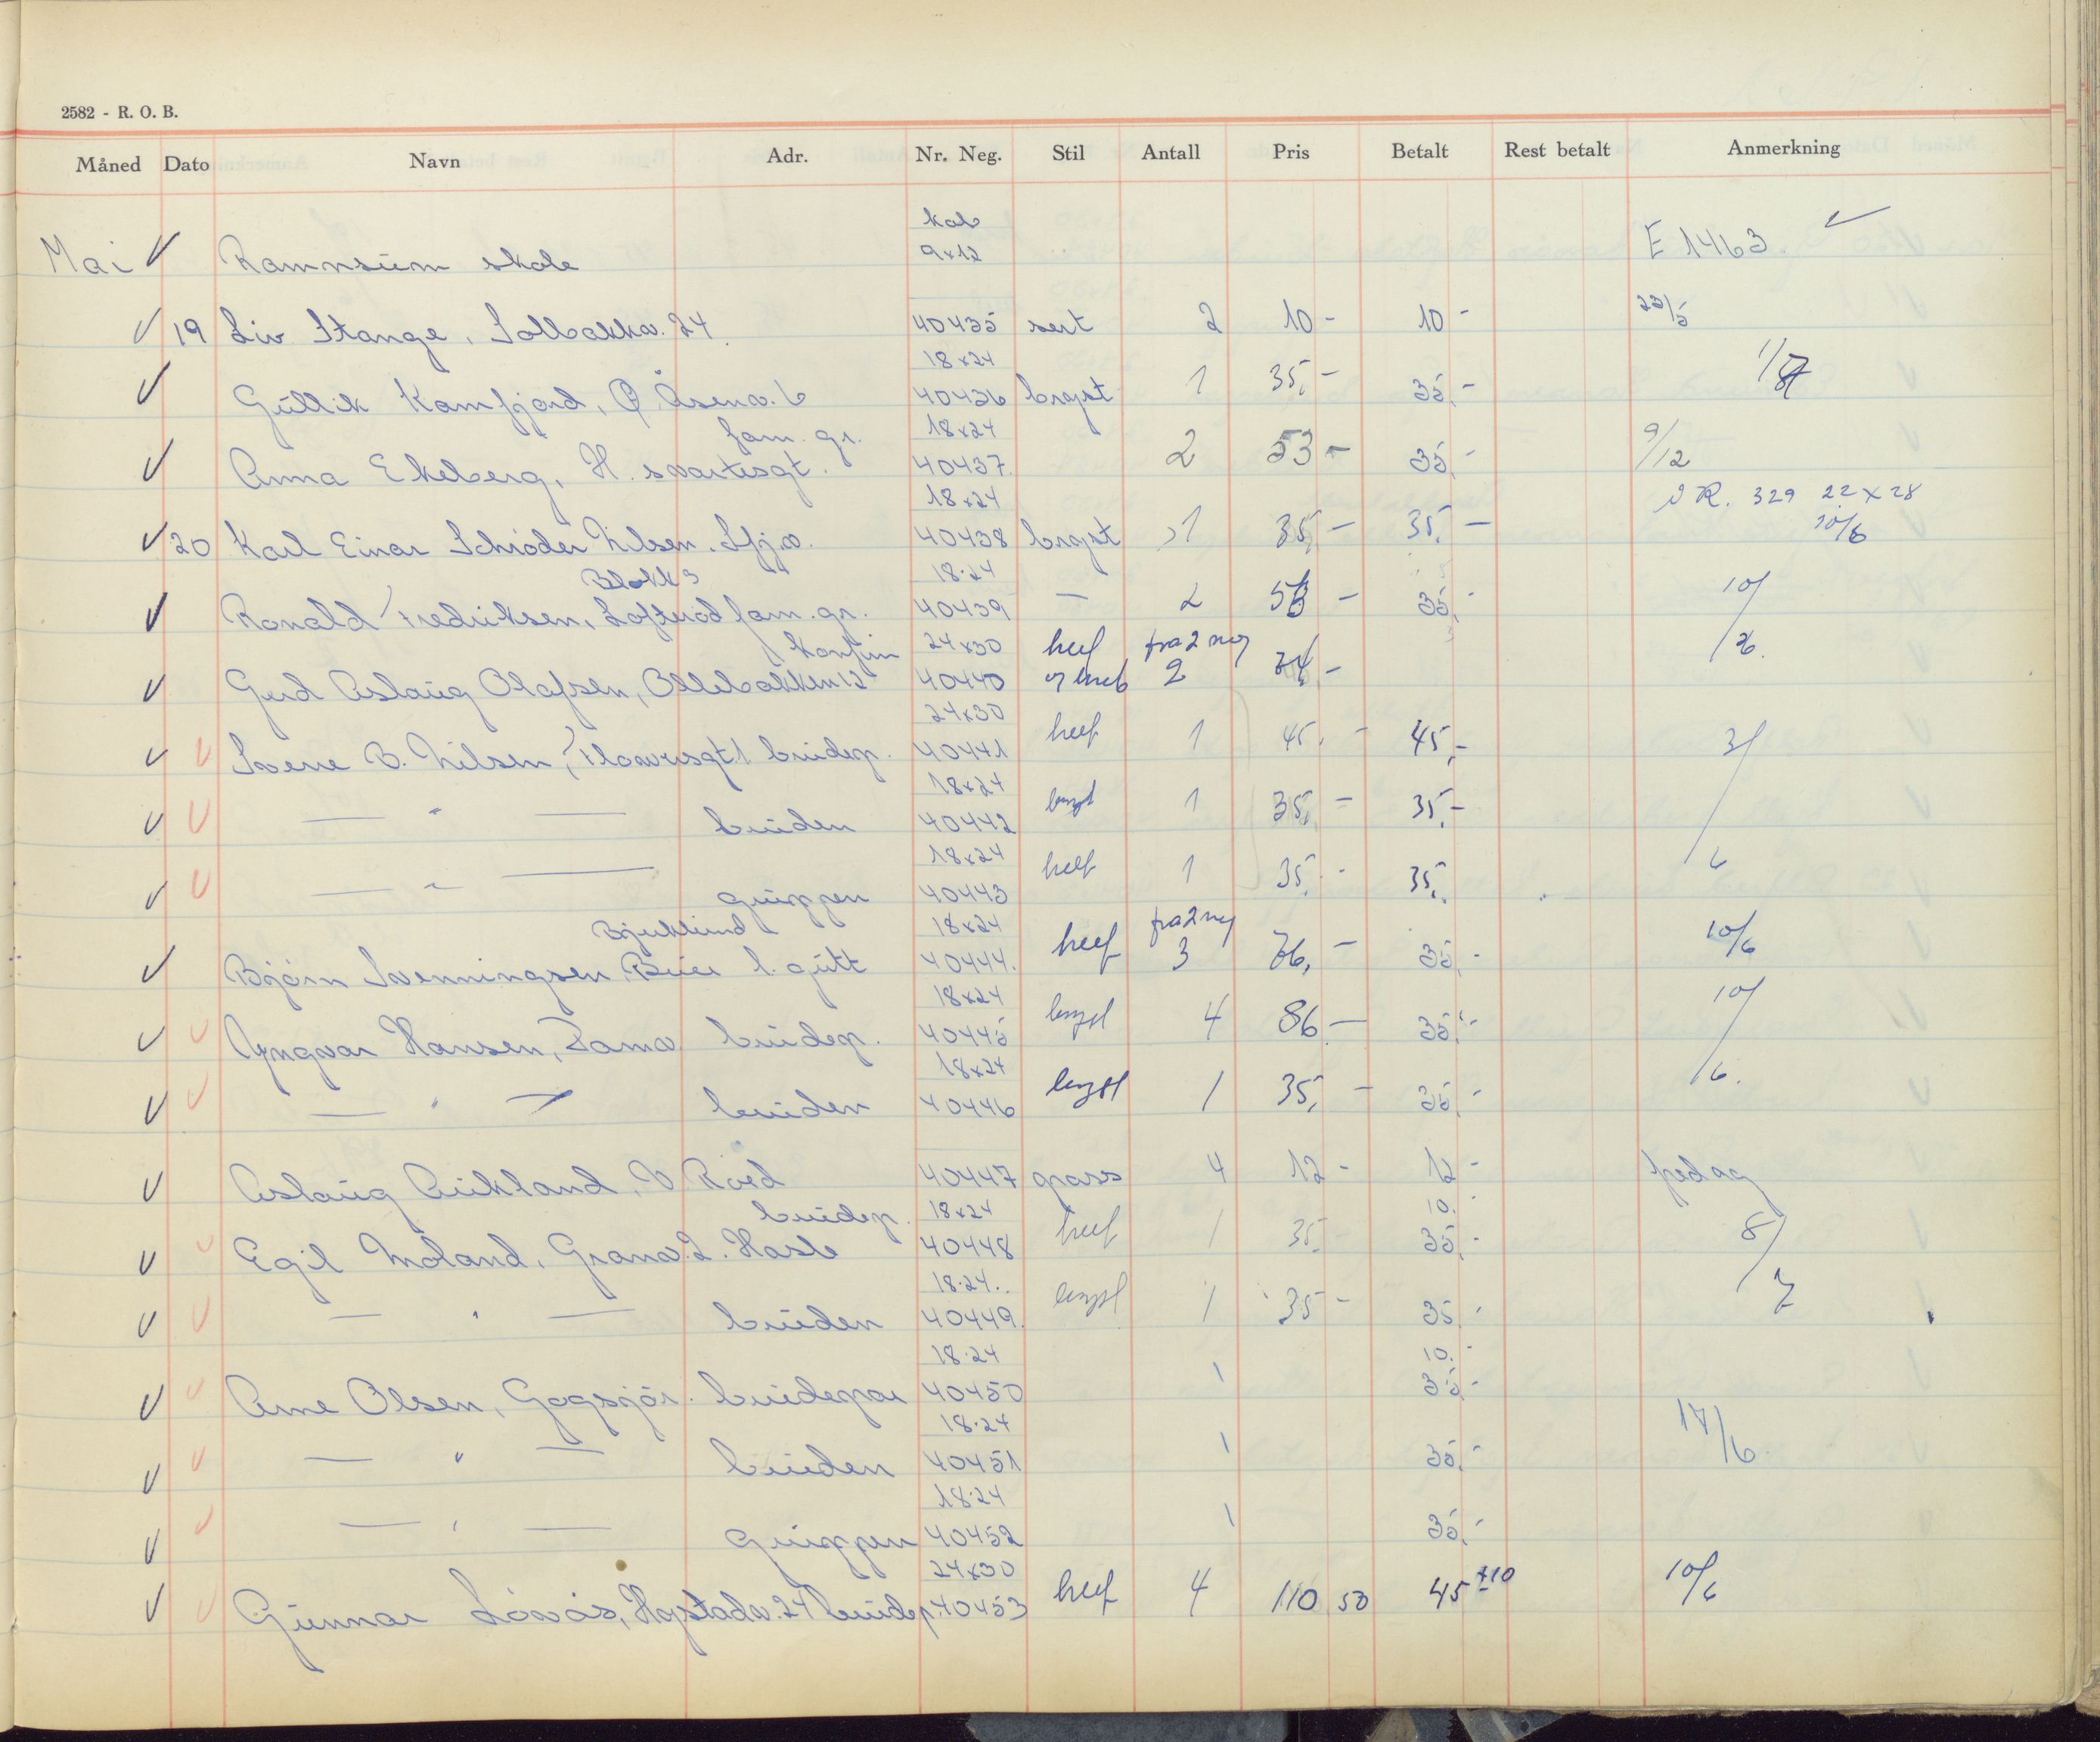 2582 - R. O. B.
Måned Dato Navn Adr. Nr. Neg. Stil Antall Pris Betalt Rest betalt Anmerkning
kab
Mai Ramnsum skole 9x12 E 1463.
19 Liv Stange, Solbakkv. 24. 40435 sort 2 10 - 10 - 23/5
18x24
Gullik Kamfjord, Ø. Åsenv. 6 40436 brgst 1 35,- 35,- 1/7
fam. gr. 18x24
Anna Ekeberg, H. svartesgt. 40437. 2 53 - 35,- 9/12
18x24 22x28
20 Karl Einar Schrøder Nilsen. Sfj.v. 40438 brgst 1 35,- 35,- 10/6
Blokk 3 18·24
Ronald Fredriksen, Lofterød fam. gr. 40439 — 2 53 - 35,- 10/6
Konfirm 24x30 heel fra 2 neg
Gerd Aslaug Olafsen, Ollebakken 12 40440 2 74 -
24x30
Svene B. Nilsen, Flowrsgt. 1 brudep. 40441 heel 1 45,- 45,- 3/6
18x24
— " — bruden 40442 brgst 1 35,- 35,-
18x24
— " — gruppen 40443 heel 1 35,- 35,-
Bjerklund 18x24 fra 2 neg
Bjørn Svenningsen, Buer l. gutt 40444. heel 3 76,- 35,- 10/6
18x24
Yngvar Hansen, Ramv. brudep. 40445 brgst 4 86 - 35,- 10/6.
18x24
— " — bruden 40446 brgst 1 35,- 35,-
Aslaug Aukland, V. Roed 40447 grass 4 12 - 12 - fredag
brudep. 18x24 10.-
Egil Moland, Granv. 2. Hasle 40448 heel 1 35,- 35,- 8/7
18·24.
— " — bruden 40449. brgst 1 35 - 35,-
18·24 10.-
Arne Olsen, Gogsjør. brudepar 40450 1 35,-
18·24
— " — bruden 40451 1 35,- 17/6.
18·24
— " — Gruppen 40452 1 35,-
24x30
Gunnar Løvås, Hystadv. 24 brudep. 40453 heel 4 110 50 45 +10 10/6